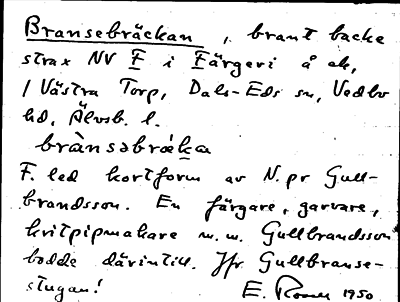 Bransebräckan, brant backe
strax NV F i Färgeri å ek,
/ Västra Torp, Dals-Eds sn, Vedbo
hd, Älvsb. l.
brànsəbrǽka
F. led kortform av N.pr Gull-
brandsson. En färgare, garvare,
kritpipmakare m.m. Gullbrandsson
bodde därintill. Jfr Gullbranse-
stugan!
E. 1950